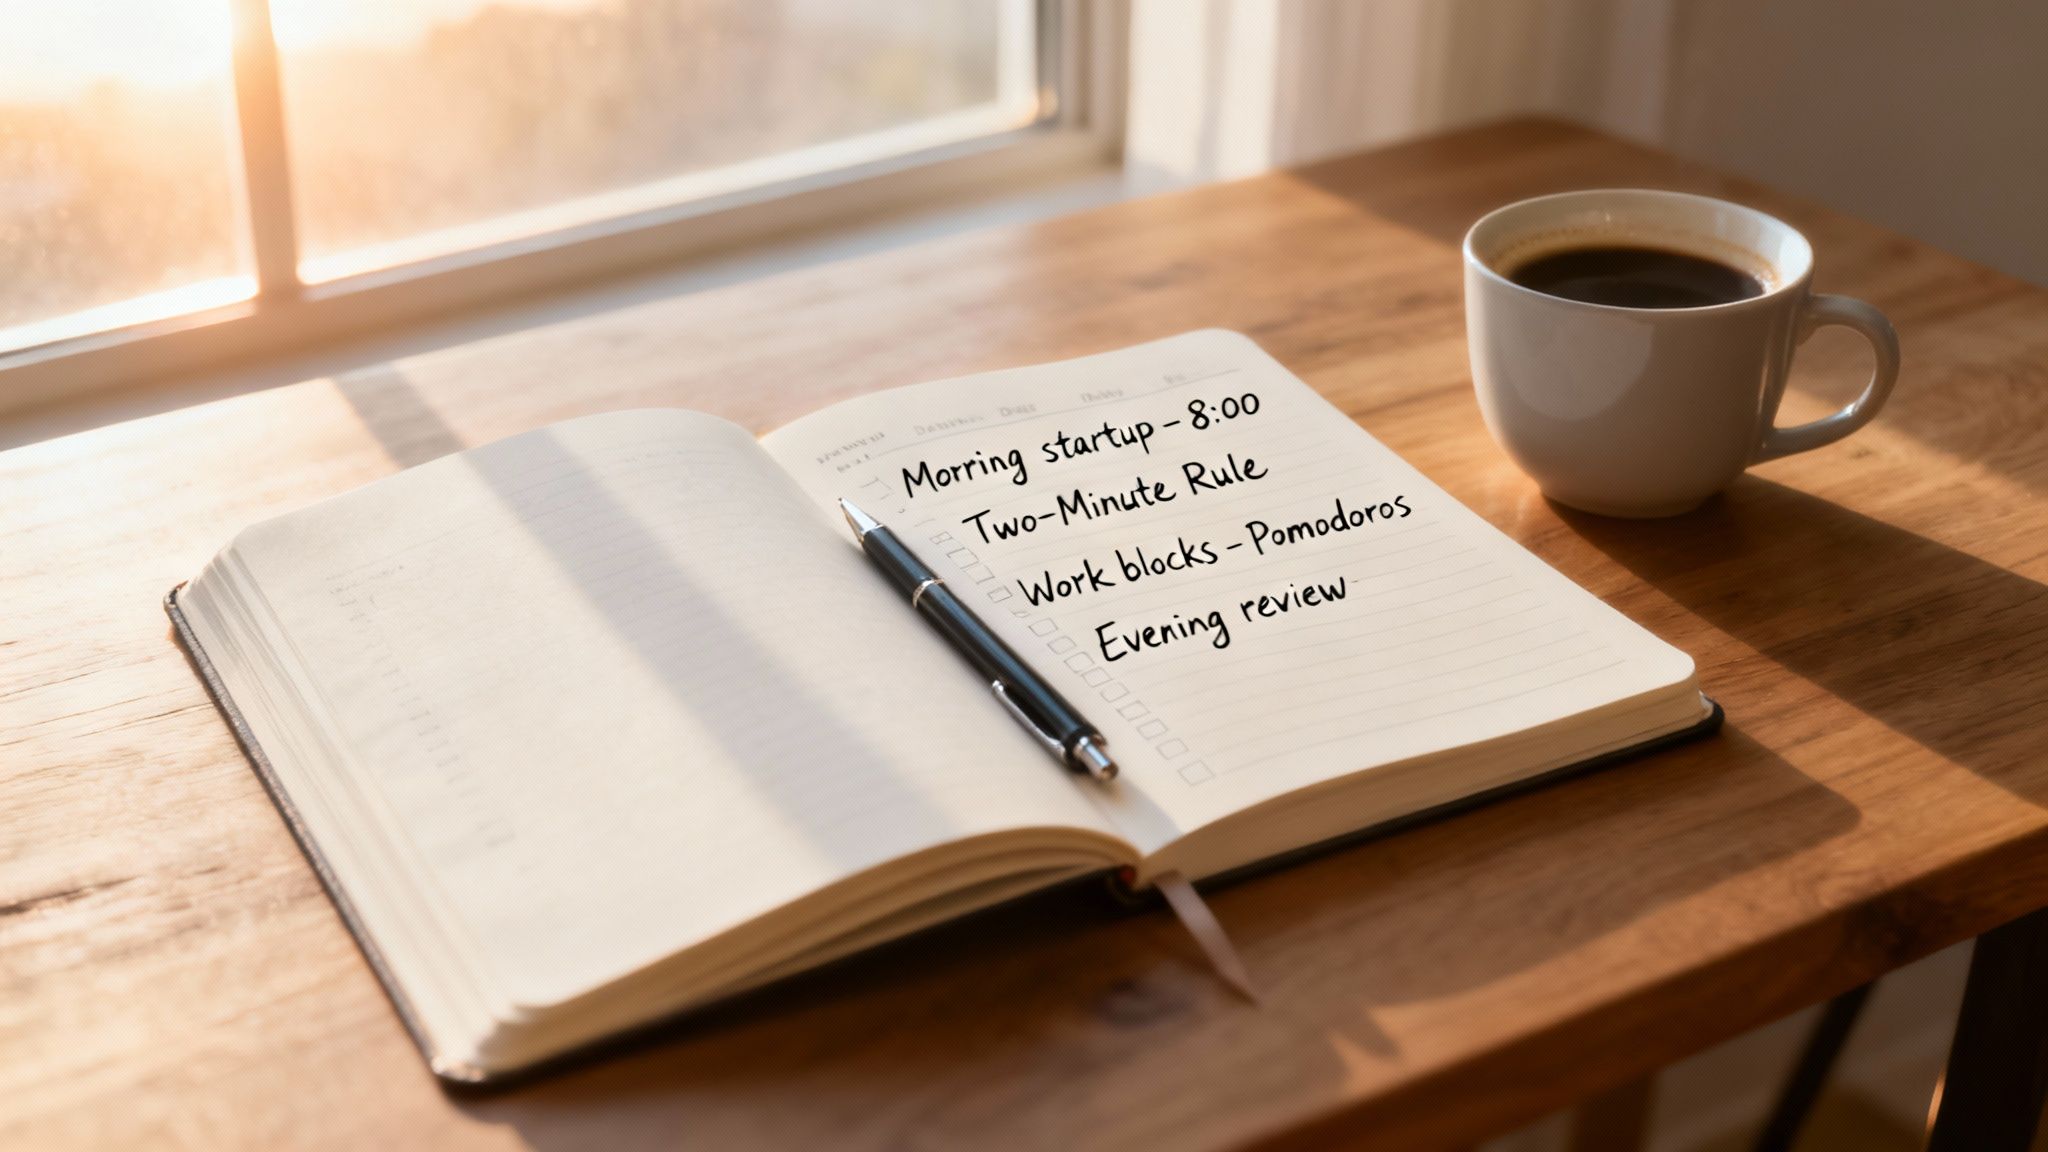 Morring startup – 8:00
Two-Minute Rule
Work blocks – Pomodoros
Evening review